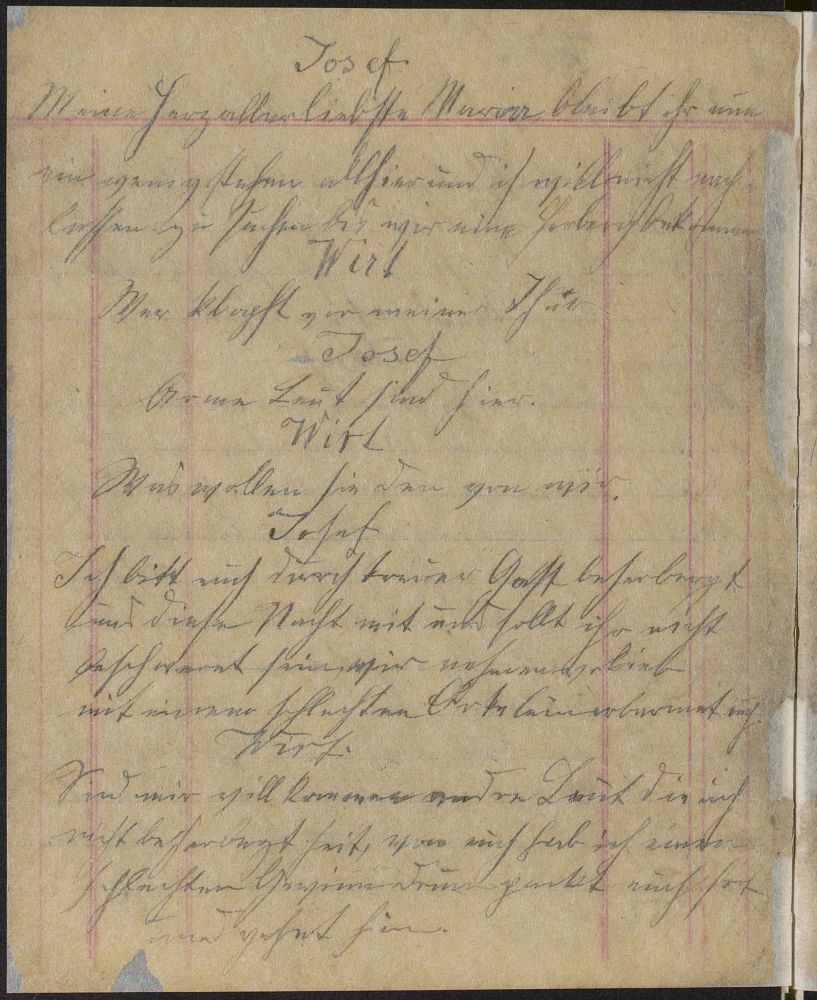 Josef
Meine Herzallerliebste Maria, bleibt ihr nun
ein wenig stehen allhier und ich will nicht nach
lassen zu suchen bis wir eine Herberg bekommen
Wirt
Wer klopft vor meiner Thür
Josef
Arme Leut sind hier.
Wirt
Was wollen sie den von mir.
Josef
Ich bitt euch durch Gott beherbergt
uns diese Nacht mit uns sollt ihr nicht
beschweret sein, wir nehmen verlieb
mit einem schlechten Örtelein erbarmet euch.
Wirt.
Sind mir willkommen andre Leut die ich
nicht beherbergt von euch hab ich einen
schlechten Gewinn drum packt euch fort
und gehet hin.